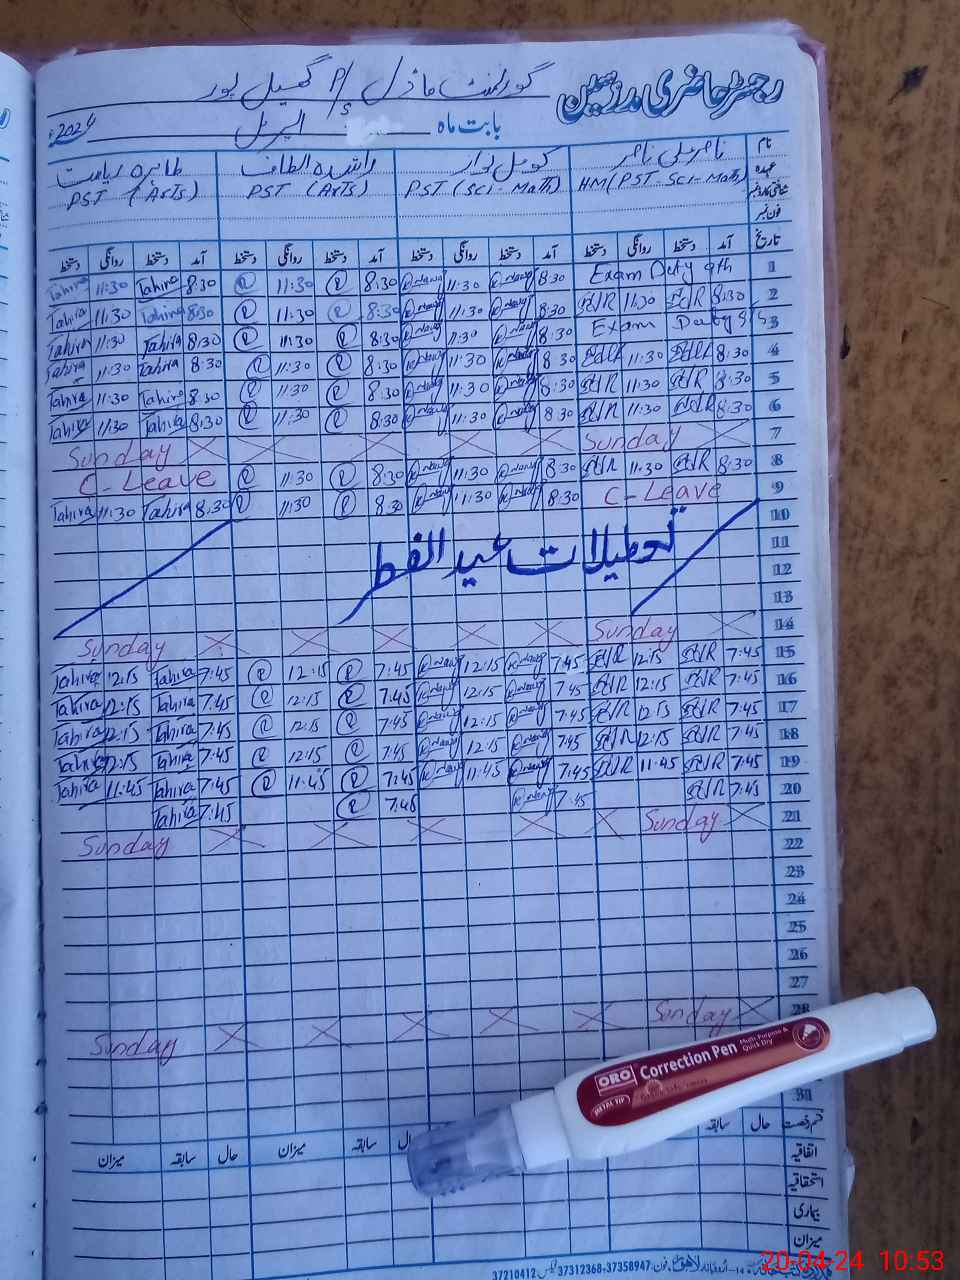 رجسٹر حاضری مدرسین گورنمنٹ ماڈل P/S گھمیل پور
بابت ماہ اپریل 2024ء
نام ناصر علی ناصر کومل نواز راشدہ الطاف طاہرہ ریاست
عہدہ HM (PST-Sci-Math) PST (Sci-Math) PST (Arts) PST (Arts)
شناختی کارڈ نمبر
فون نمبر
تاریخ آمد دستخط روانگی دستخط آمد دستخط روانگی دستخط آمد دستخط روانگی دستخط آمد دستخط روانگی دستخط
Tahira 11:30 Tahira 8:30 R 11:30 R 8:30 K.Nawaz 11:30 K.Nawaz 8:30 Exam Duty 9th 1
Tahira 11:30 Tahira 8:30 R 11:30 R 8:30 K.Nawaz 11:30 K.Nawaz 8:30 11:30 8:30 2
Tahira 11:30 Tahira 8:30 R 11:30 R 8:30 K.Nawaz 11:30 K.Nawaz 8:30 Exam Duty 3
Tahira 11:30 Tahira 8:30 R 11:30 R 8:30 K.Nawaz 11:30 K.Nawaz 8:30 11:30 8:30 4
Tahira 11:30 Tahira 8:30 R 11:30 R 8:30 K.Nawaz 11:30 K.Nawaz 8:30 11:30 8:30 5
Tahira 11:30 Tahira 8:30 R 11:30 R 8:30 K.Nawaz 11:30 K.Nawaz 8:30 11:30 8:30 6
Sunday Sunday 7
C-Leave R 11:30 R 8:30 K.Nawaz 11:30 K.Nawaz 8:30 11:30 8:30 8
Tahira 11:30 Tahira 8:30 R 11:30 R 8:30 K.Nawaz 11:30 K.Nawaz 8:30 C-Leave 9
10
تعطیلات عید الفطر 11
12
13
Sunday Sunday 14
Tahira 12:15 Tahira 7:45 R 12:15 R 7:45 K.Nawaz 12:15 K.Nawaz 7:45 12:15 7:45 15
Tahira 12:15 Tahira 7:45 R 12:15 R 7:45 K.Nawaz 12:15 K.Nawaz 7:45 12:15 7:45 16
Tahira 12:15 Tahira 7:45 R 12:15 R 7:45 K.Nawaz 12:15 K.Nawaz 7:45 12:15 7:45 17
Tahira 12:15 Tahira 7:45 R 12:15 R 7:45 K.Nawaz 12:15 K.Nawaz 7:45 12:15 7:45 18
Tahira 11:45 Tahira 7:45 R 11:45 R 7:45 K.Nawaz 11:45 K.Nawaz 7:45 11:45 7:45 19
Tahira 7:45 R 7:45 K.Nawaz 7:45 7:45 20
Sunday Sunday 21
22
23
24
25
26
27
Sunday Sunday 28
31
ORO Correction Pen Multi Purpose & Quick Dry
METAL TIP
قسم رخصت حال سابقہ حال سابقہ میزان حال سابقہ میزان
اتفاقیہ
استحقاقیہ
بیماری
میزان
فون: 37358947-37312368 فیکس 37210412
20-04-24 10:53